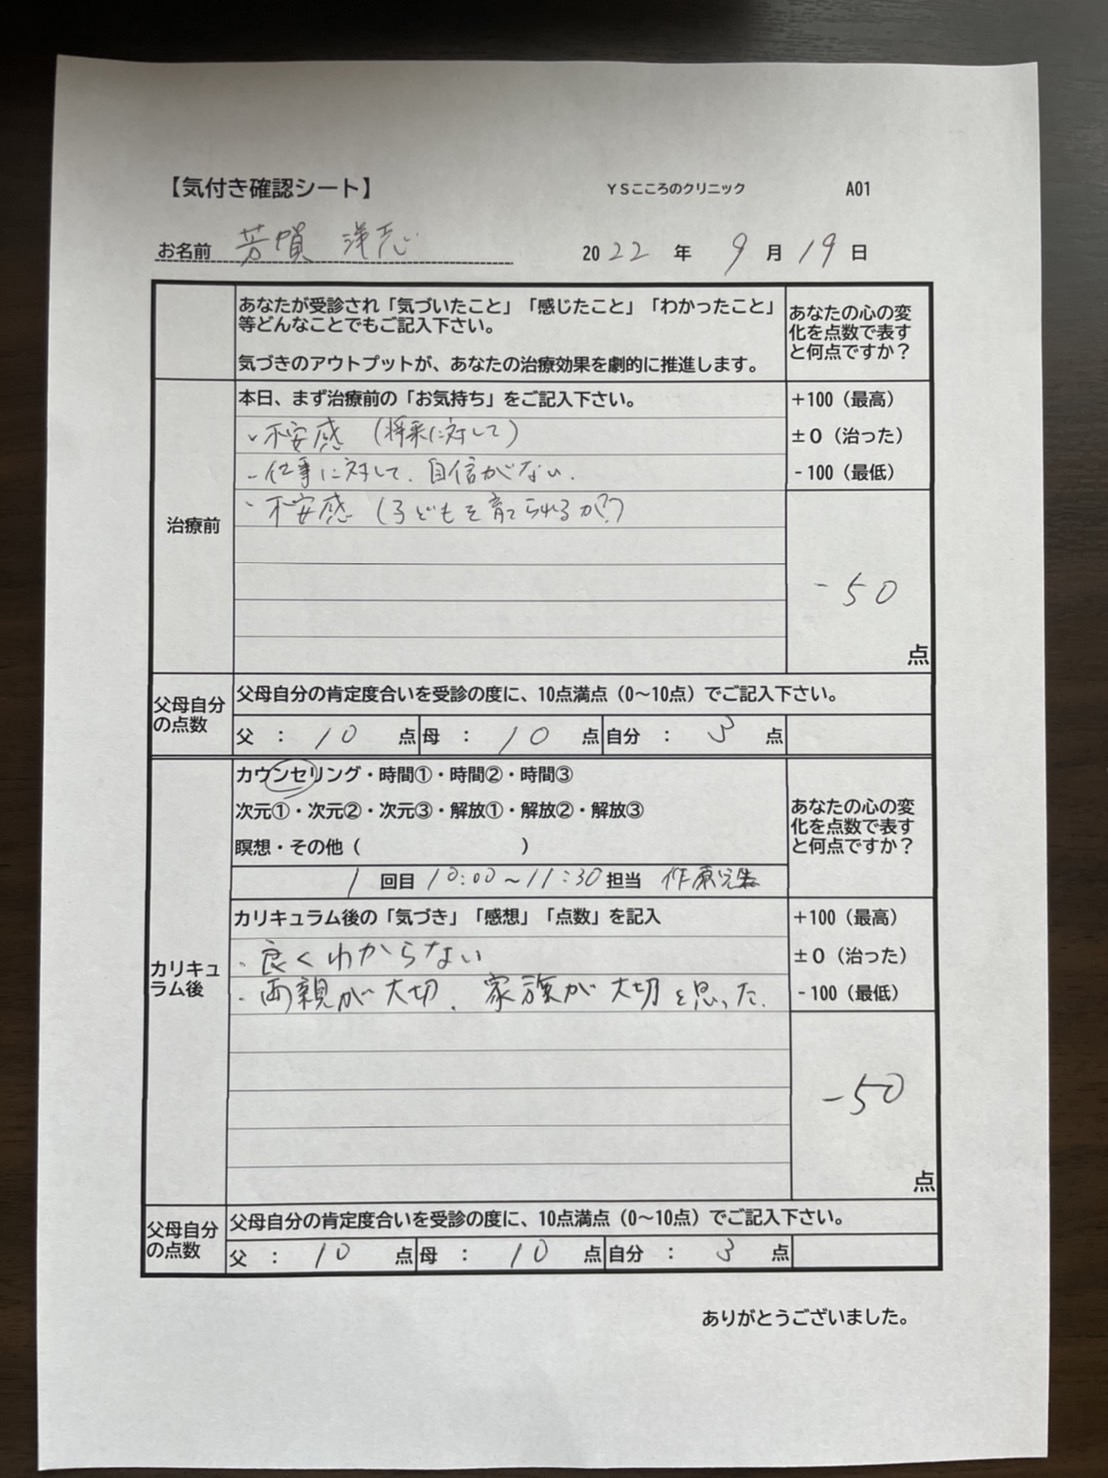 【気付き確認シート】 YSこころのクリニック A01
お名前 芳賀 洋志 2022年 9月19日
あなたが受診され「気づいたこと」「感じたこと」「わかったこと」
等どんなことでもご記入下さい。
気づきのアウトプットが、あなたの治療効果を劇的に推進します。
あなたの心の変
化を点数で表す
と何点ですか？
治療前
本日、まず治療前の「お気持ち」をご記入下さい。
・不安感（将来に対して）
・仕事に対して、自信がない.
・不安感（子どもを育てられるか?）
+100（最高）
±0（治った）
-100（最低）
-50
点
父母自分
の点数
父母自分の肯定度合いを受診の度に、10点満点（0～10点）でご記入下さい。
父 ： 10 点 母 ： 10 点 自分 ： 3 点
カリキュ
ラム後
カウンセリング・時間①・時間②・時間③
次元①・次元②・次元③・解放①・解放②・解放③
瞑想・その他（ ）
1 回目 10:00～11:30 担当 作原先生
あなたの心の変
化を点数で表す
と何点ですか？
カリキュラム後の「気づき」「感想」「点数」を記入
・良くわからない
・両親が大切、家族が大切と思った.
+100（最高）
±0（治った）
-100（最低）
-50
点
父母自分
の点数
父母自分の肯定度合いを受診の度に、10点満点（0～10点）でご記入下さい。
父 ： 10 点 母 ： 10 点 自分 ： 3 点
ありがとうございました。